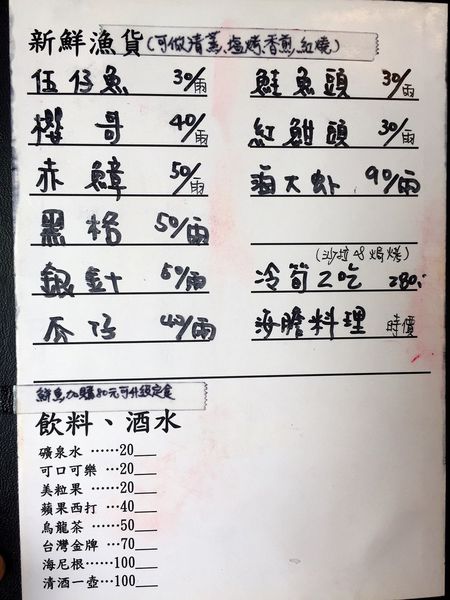 新鮮漁貨(可做清蒸、塩烤、香煎、紅燒)
伍仔魚 30/兩
櫻哥 40/兩
赤鯮 50/兩
黑格 50/兩
銀針 50/兩
瓜仔 40/兩
鮭魚頭 30/兩
紅魽頭 30/兩
海大虾 90/兩
(沙拉 48 焗烤)
冷筍2吃 280.-
海膽料理 時價
鮮魚加購80元可升級定食
飲料、酒水
礦泉水 ……20___
可口可樂 …20___
美粒果 ……20___
蘋果西打 …40___
烏龍茶 ……50___
台灣金牌 …70___
海尼根……100___
清酒一壺…100___